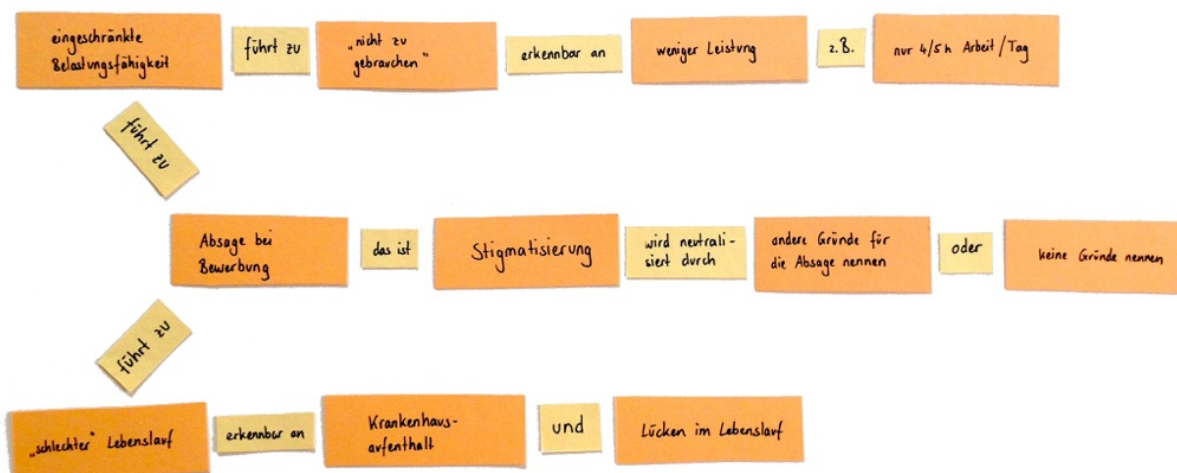 eingeschränkte
Belastungsfähigkeit
führt zu
„nicht zu
gebrauchen"
erkennbar an
weniger Leistung
z.B.
nur 4/5 h Arbeit/Tag
führt zu
Absage bei
Bewerbung
das ist
Stigmatisierung
wird neutrali-
siert durch
andere Gründe für
die Absage nennen
oder
keine Gründe nennen
führt zu
„schlechter" Lebenslauf
erkennbar an
Krankenhaus-
aufenthalt
und
Lücken im Lebenslauf